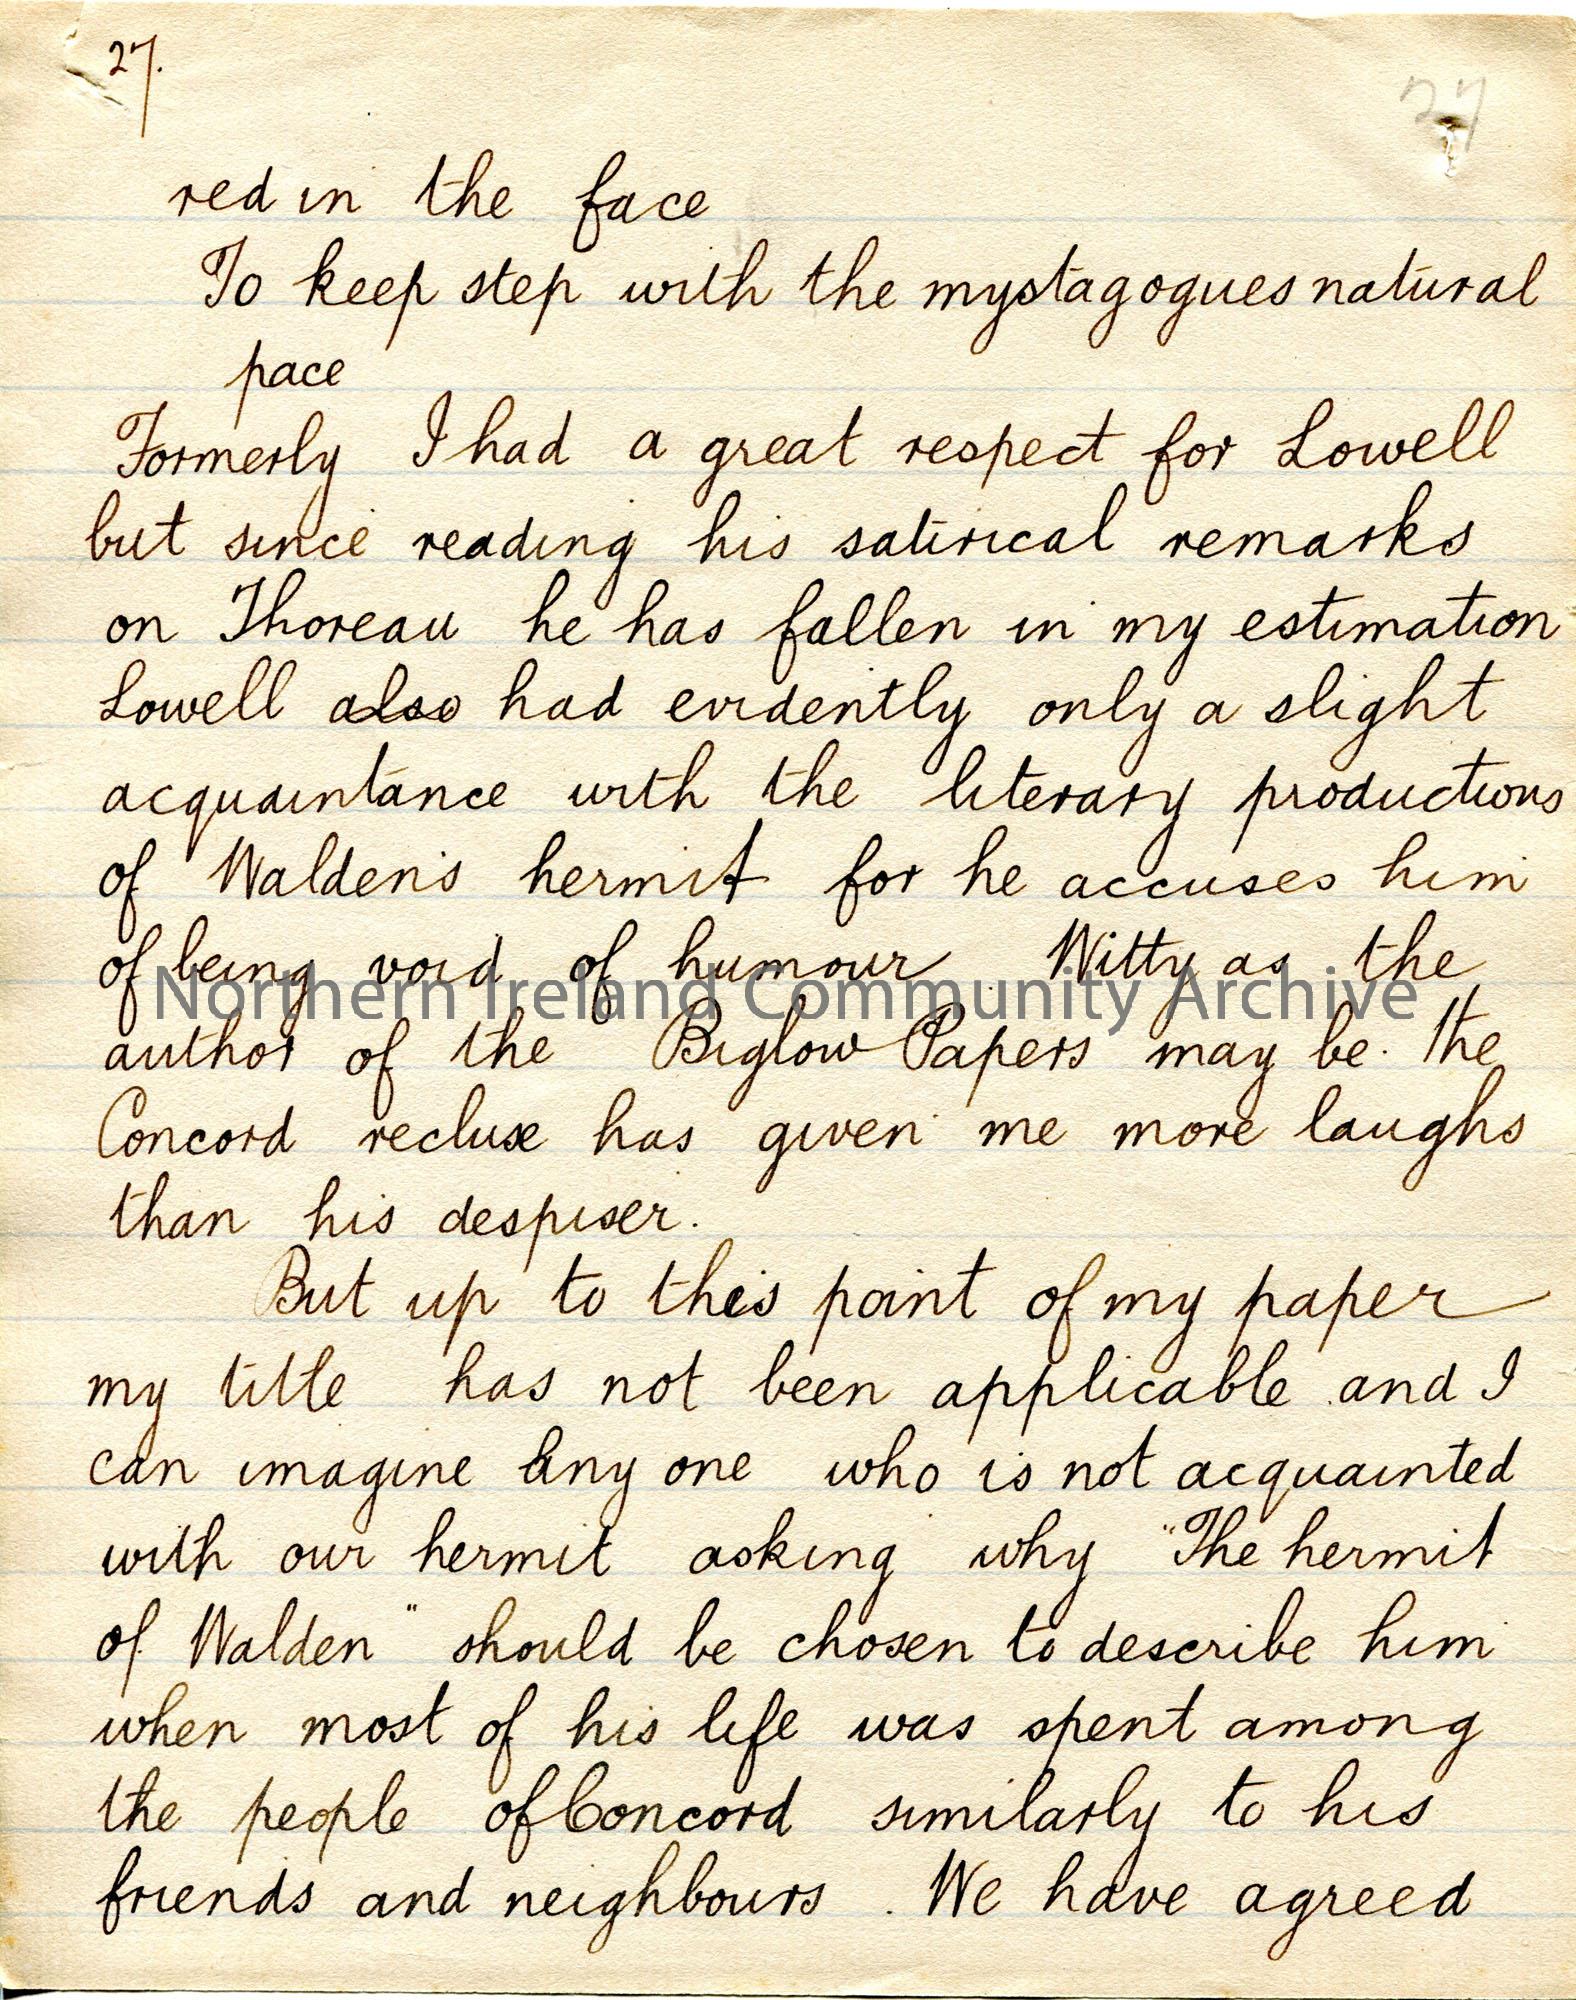 27.
27
red in the face
To keep step with the mystagogues natural
pace
Formerly I had a great respect for Lowell
but since reading his satirical remarks
on Thoreau he has fallen in my estimation
Lowell also had evidently only a slight
acquaintance with the literary productions
of Walden's hermit for he accuses him
of being void of humour. Witty as the
Northern Ireland Community Archive
author of the Biglow Papers may be. the
Concord recluse has given me more laughs
than his despiser.
But up to this point of my paper
my title has not been applicable and I
can imagine any one who is not acquainted
with our hermit asking why "The hermit
of Walden" should be chosen to describe him
when most of his life was spent among
the people of Concord similarly to his
friends and neighbours. We have agreed